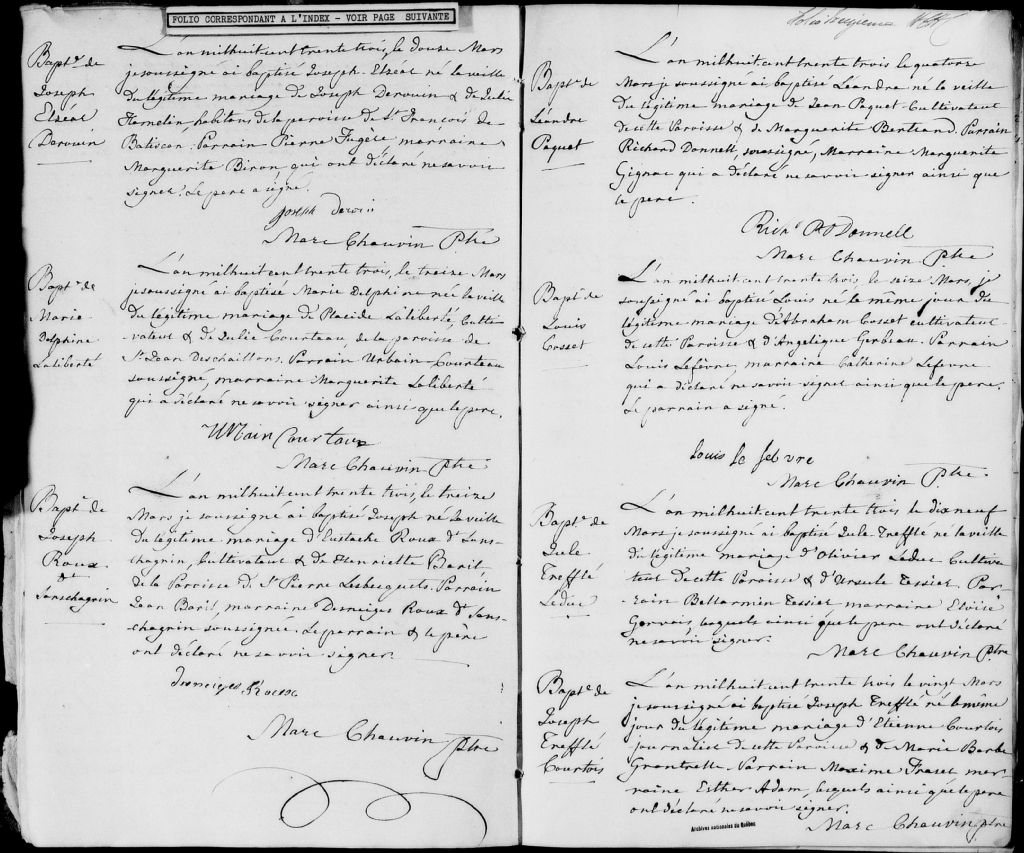 FOLIO CORRESPONDANT A L'INDEX - VOIR PAGE SUIVANTE
Bapt. de
Joseph
Elzéar
Derouin
L'an milhuit cent trente trois, le douze Mars
je soussigné ai baptisé Joseph Elzéar né la veille
du légitime mariage de Joseph Derouin & de Julie
Hamelin, habitans de la paroisse de St. François de
Batiscan. Parrain Pierre Fugère, marraine
Marguerite Biron, qui ont déclaré ne savoir
signer. Le pere a signé.
Joseph
Marc Chauvin Ptre
Bapt. de
Marie
Delphine
Laliberté
L'an milhuit cent trente trois, le treize Mars
je soussigné ai baptisé Marie Delphine née la veille
du légitime mariage de Placide Laliberté, Culti-
vateur & de Julie Courteau, de la paroisse de
St. Jean Deschaillons. Parrain Urbain Courteau
soussigné, marraine Marguerite Laliberté
qui a déclaré ne savoir signer ainsi que le pere.
Marc Chauvin Ptre
Bapt. de
Joseph
Roux
dt
Sanschagrin
L'an milhuit cent trente trois, le treize
Mars je soussigné ai baptisé Joseph né la veille
du légitime mariage d'Eustache Roux dt Sans-
chagrin, Cultivateur & de Henriette Baril
de la Paroisse de St. Pierre Lesbecquets. Parrain
Jean Baril, marraine Desneiges Roux dt Sans-
chagrin soussignée. Le parrain & le père
ont déclaré ne savoir signer.
Marc Chauvin Ptre
Bapt. de
Léandre
Paquet
L'an milhuit cent trente trois le quatorze
Mars je soussigné ai baptisé Léandre né la veille
du légitime mariage de Jean Paquet Cultivateur
de cette Paroisse & de Marguerite Bertrand. Parrain
Richard Donnell, soussigné, Marraine Marguerite
Gignac qui a déclaré ne savoir signer ainsi que
le pere.
Donnell
Marc Chauvin Ptre
Bapt. de
Louis
Cosset
L'an milhuit cent trente trois, le seize Mars, je
soussigné ai baptisé Louis né le même jour du
légitime mariage d'Abraham Cosset cultivateur
de cette Paroisse & d'Angelique Gerbeau. Parrain
Louis Lefèvre, marraine Catherine Lefevre
qui a déclaré ne savoir signer ainsi que le pere.
Le parrain a signé.
Louis le febvre
Marc Chauvin Ptre
Bapt. de
Jule
Trefflé
Leduc
L'an milhuit cent trente trois le dix neuf
Mars je soussigné ai baptisé Jule Trefflé né la veille
du légitime mariage d'Olivier Leduc Cultiva-
teur de cette Paroisse & d'Ursule Tessier. Par-
rain Bellarmin Tessier, marraine Eloïse
Gervais, lesquels ainsi que le pere ont déclaré
ne savoir signer.
Marc Chauvin Ptre
Bapt. de
Joseph
Trefflé
Courtois
L'an milhuit cent trente trois le vingt Mars
je soussigné ai baptisé Joseph Trefflé né le même
jour du légitime mariage d'Etienne Courtois
journalier de cette Paroisse & de Marie Barbe
Parrain Maxime Fraser mar-
raine Esther Adam, lesquels ainsi que le pere
ont déclaré ne savoir signer.
Marc Chauvin ptre
Archives nationales du Québec